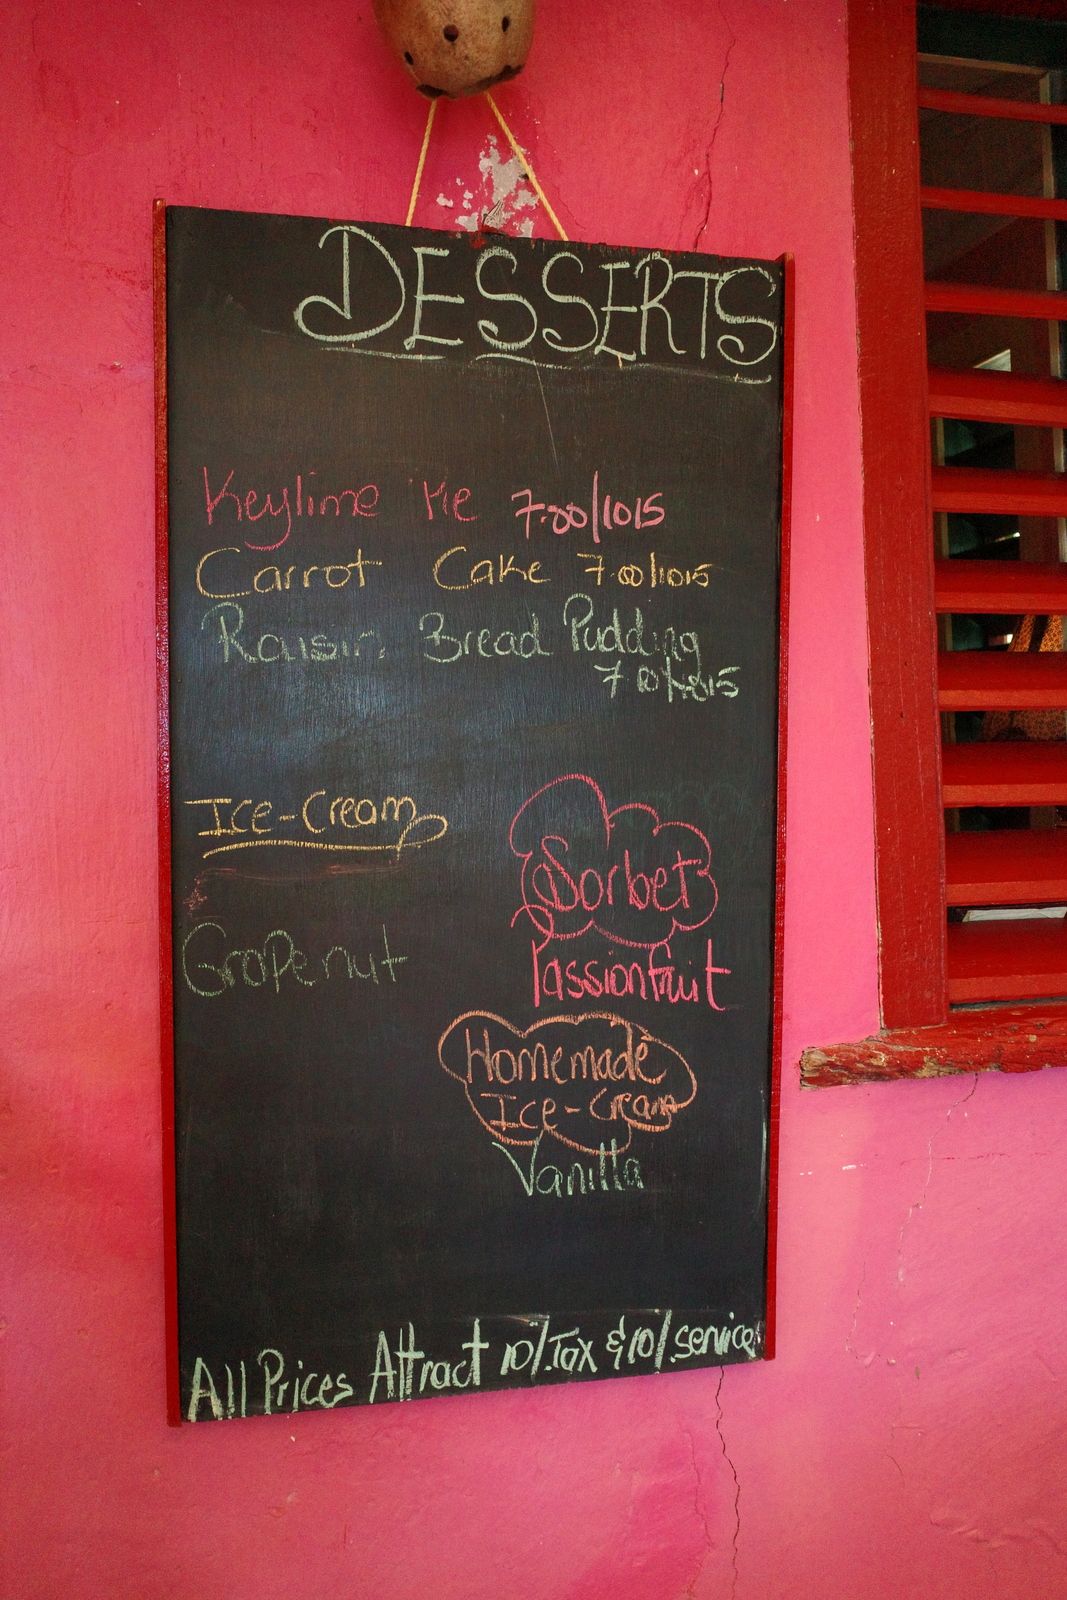 DESSERTS
Keylime Pie 7.00/1015
Carrot Cake 7.00/1015
Raisin Bread Pudding
7.00/1015
Ice-Cream
Sorbet
Grapenut
Passionfruit
Homemade
Ice-Cream
Vanilla
All Prices Attract 10% Tax & 10% service